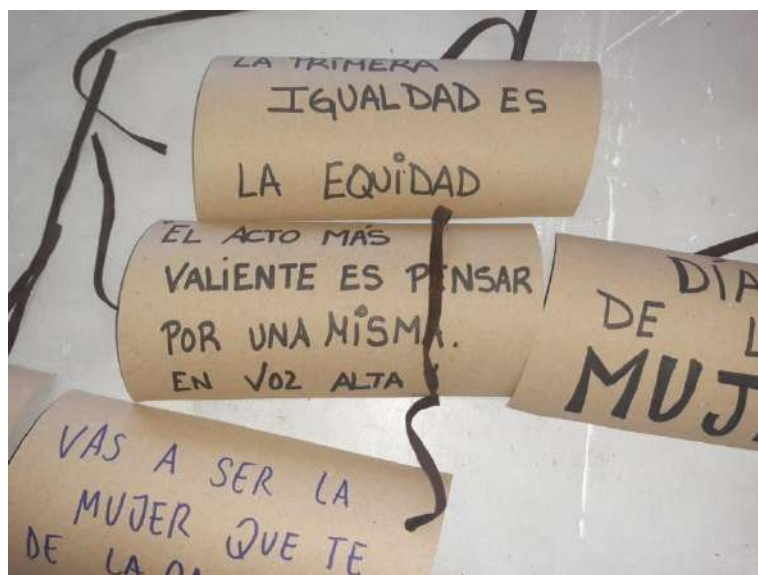 LA PRIMERA
IGUALDAD ES
LA EQUIDAD
"EL ACTO MÁS
VALIENTE ES PENSAR
POR UNA MISMA.
EN VOZ ALTA"
DÍA
DE L
MUJ
VAS A SER LA
MUJER QUE TE
DE LA